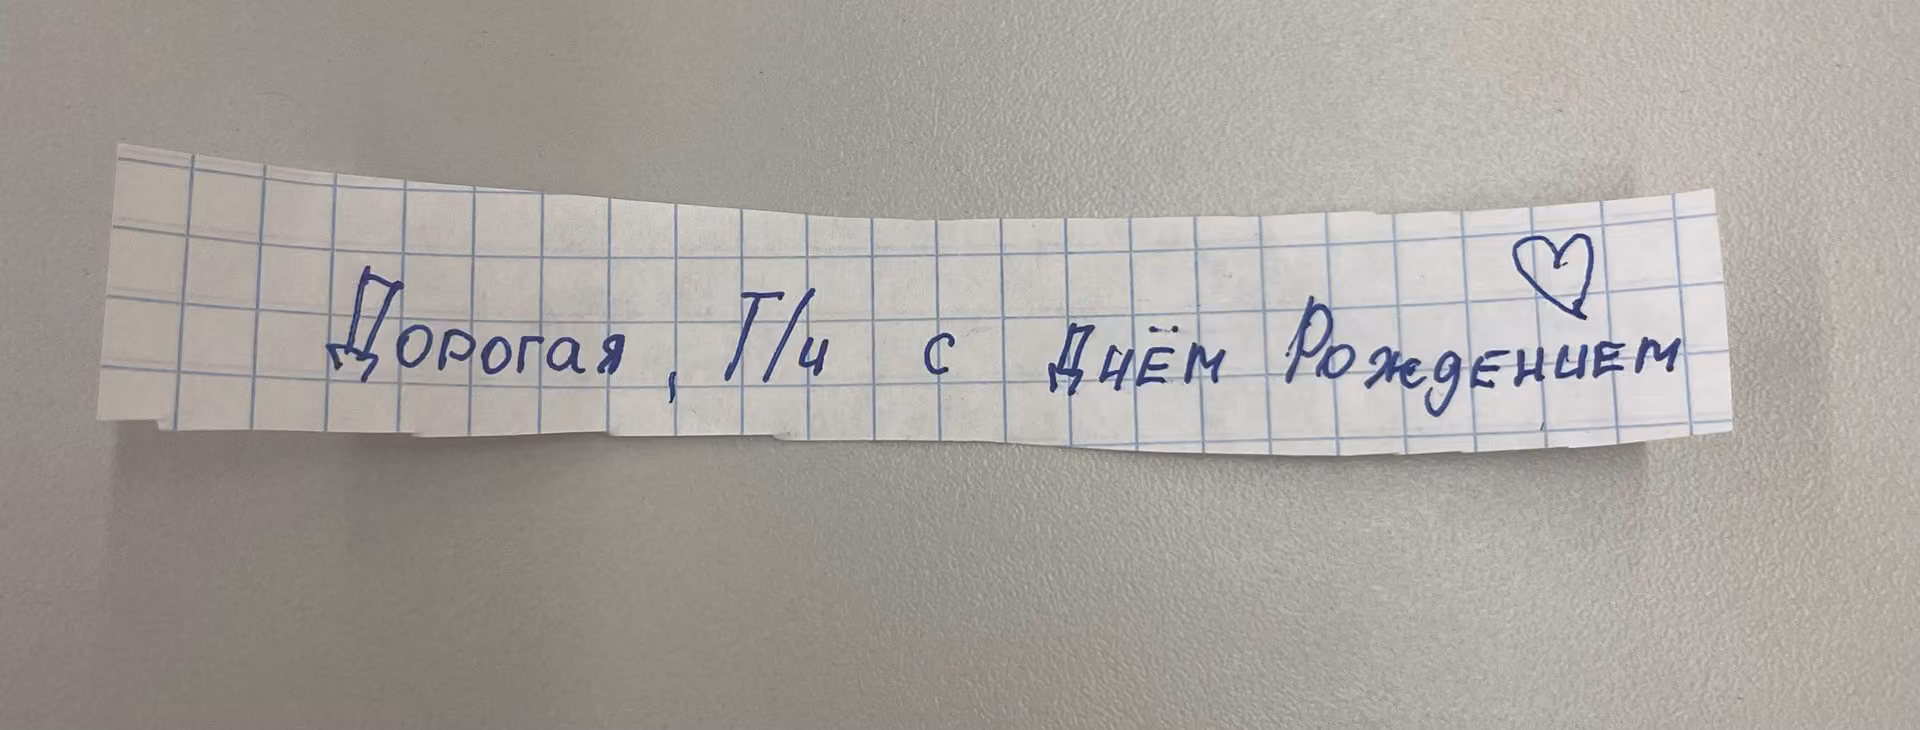 Дорогая, Т/и с днём Рождением